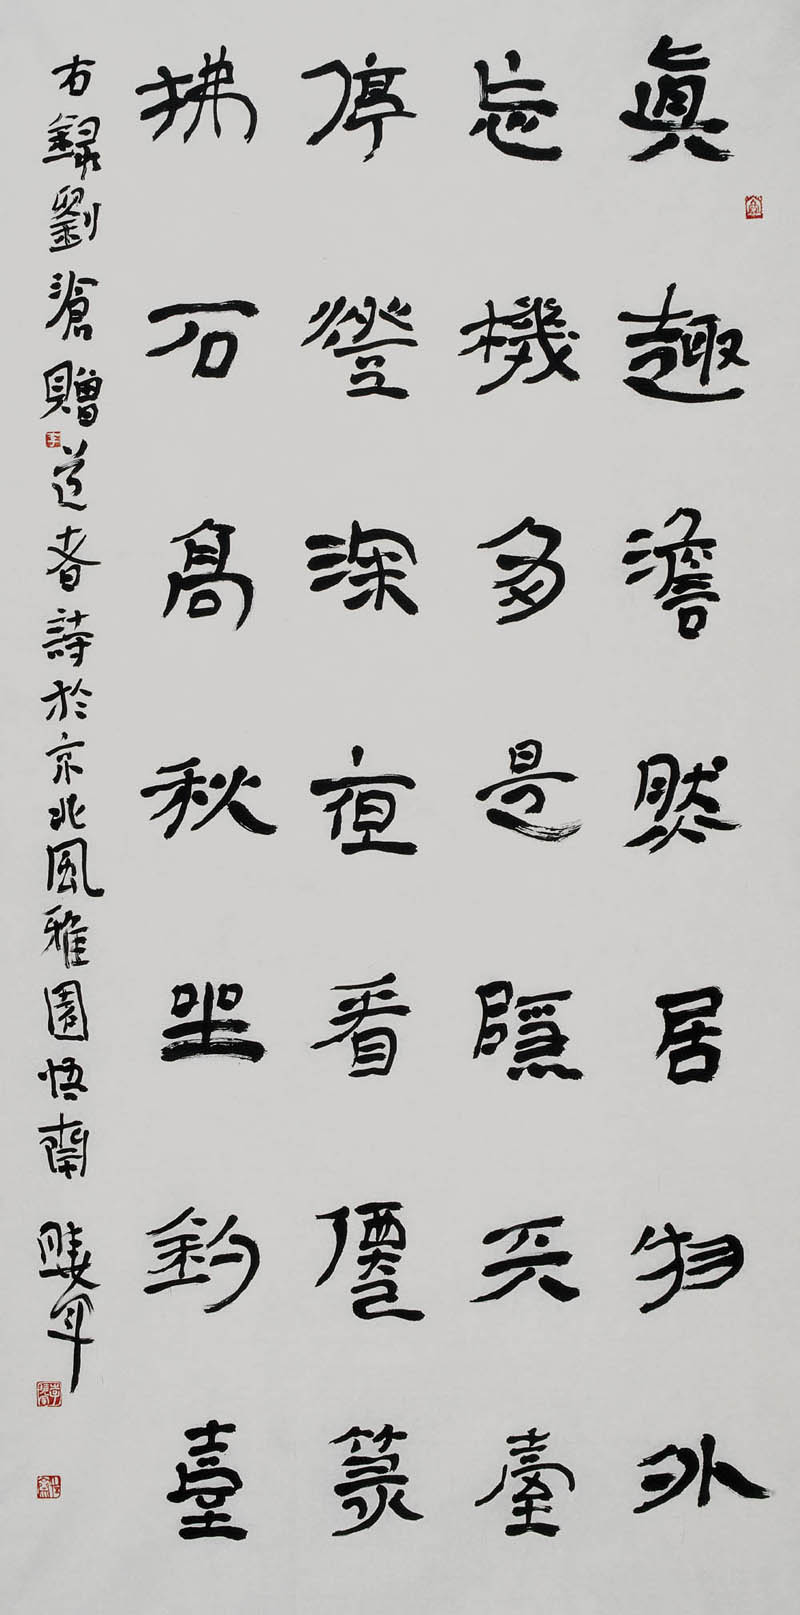 眞趣澹然居物外
忘機多是隱天臺
停燈深夜看僊篆
拂石高秋坐釣臺
右錄劉滄贈道者詩於京北風雅園悟 曉軍
李